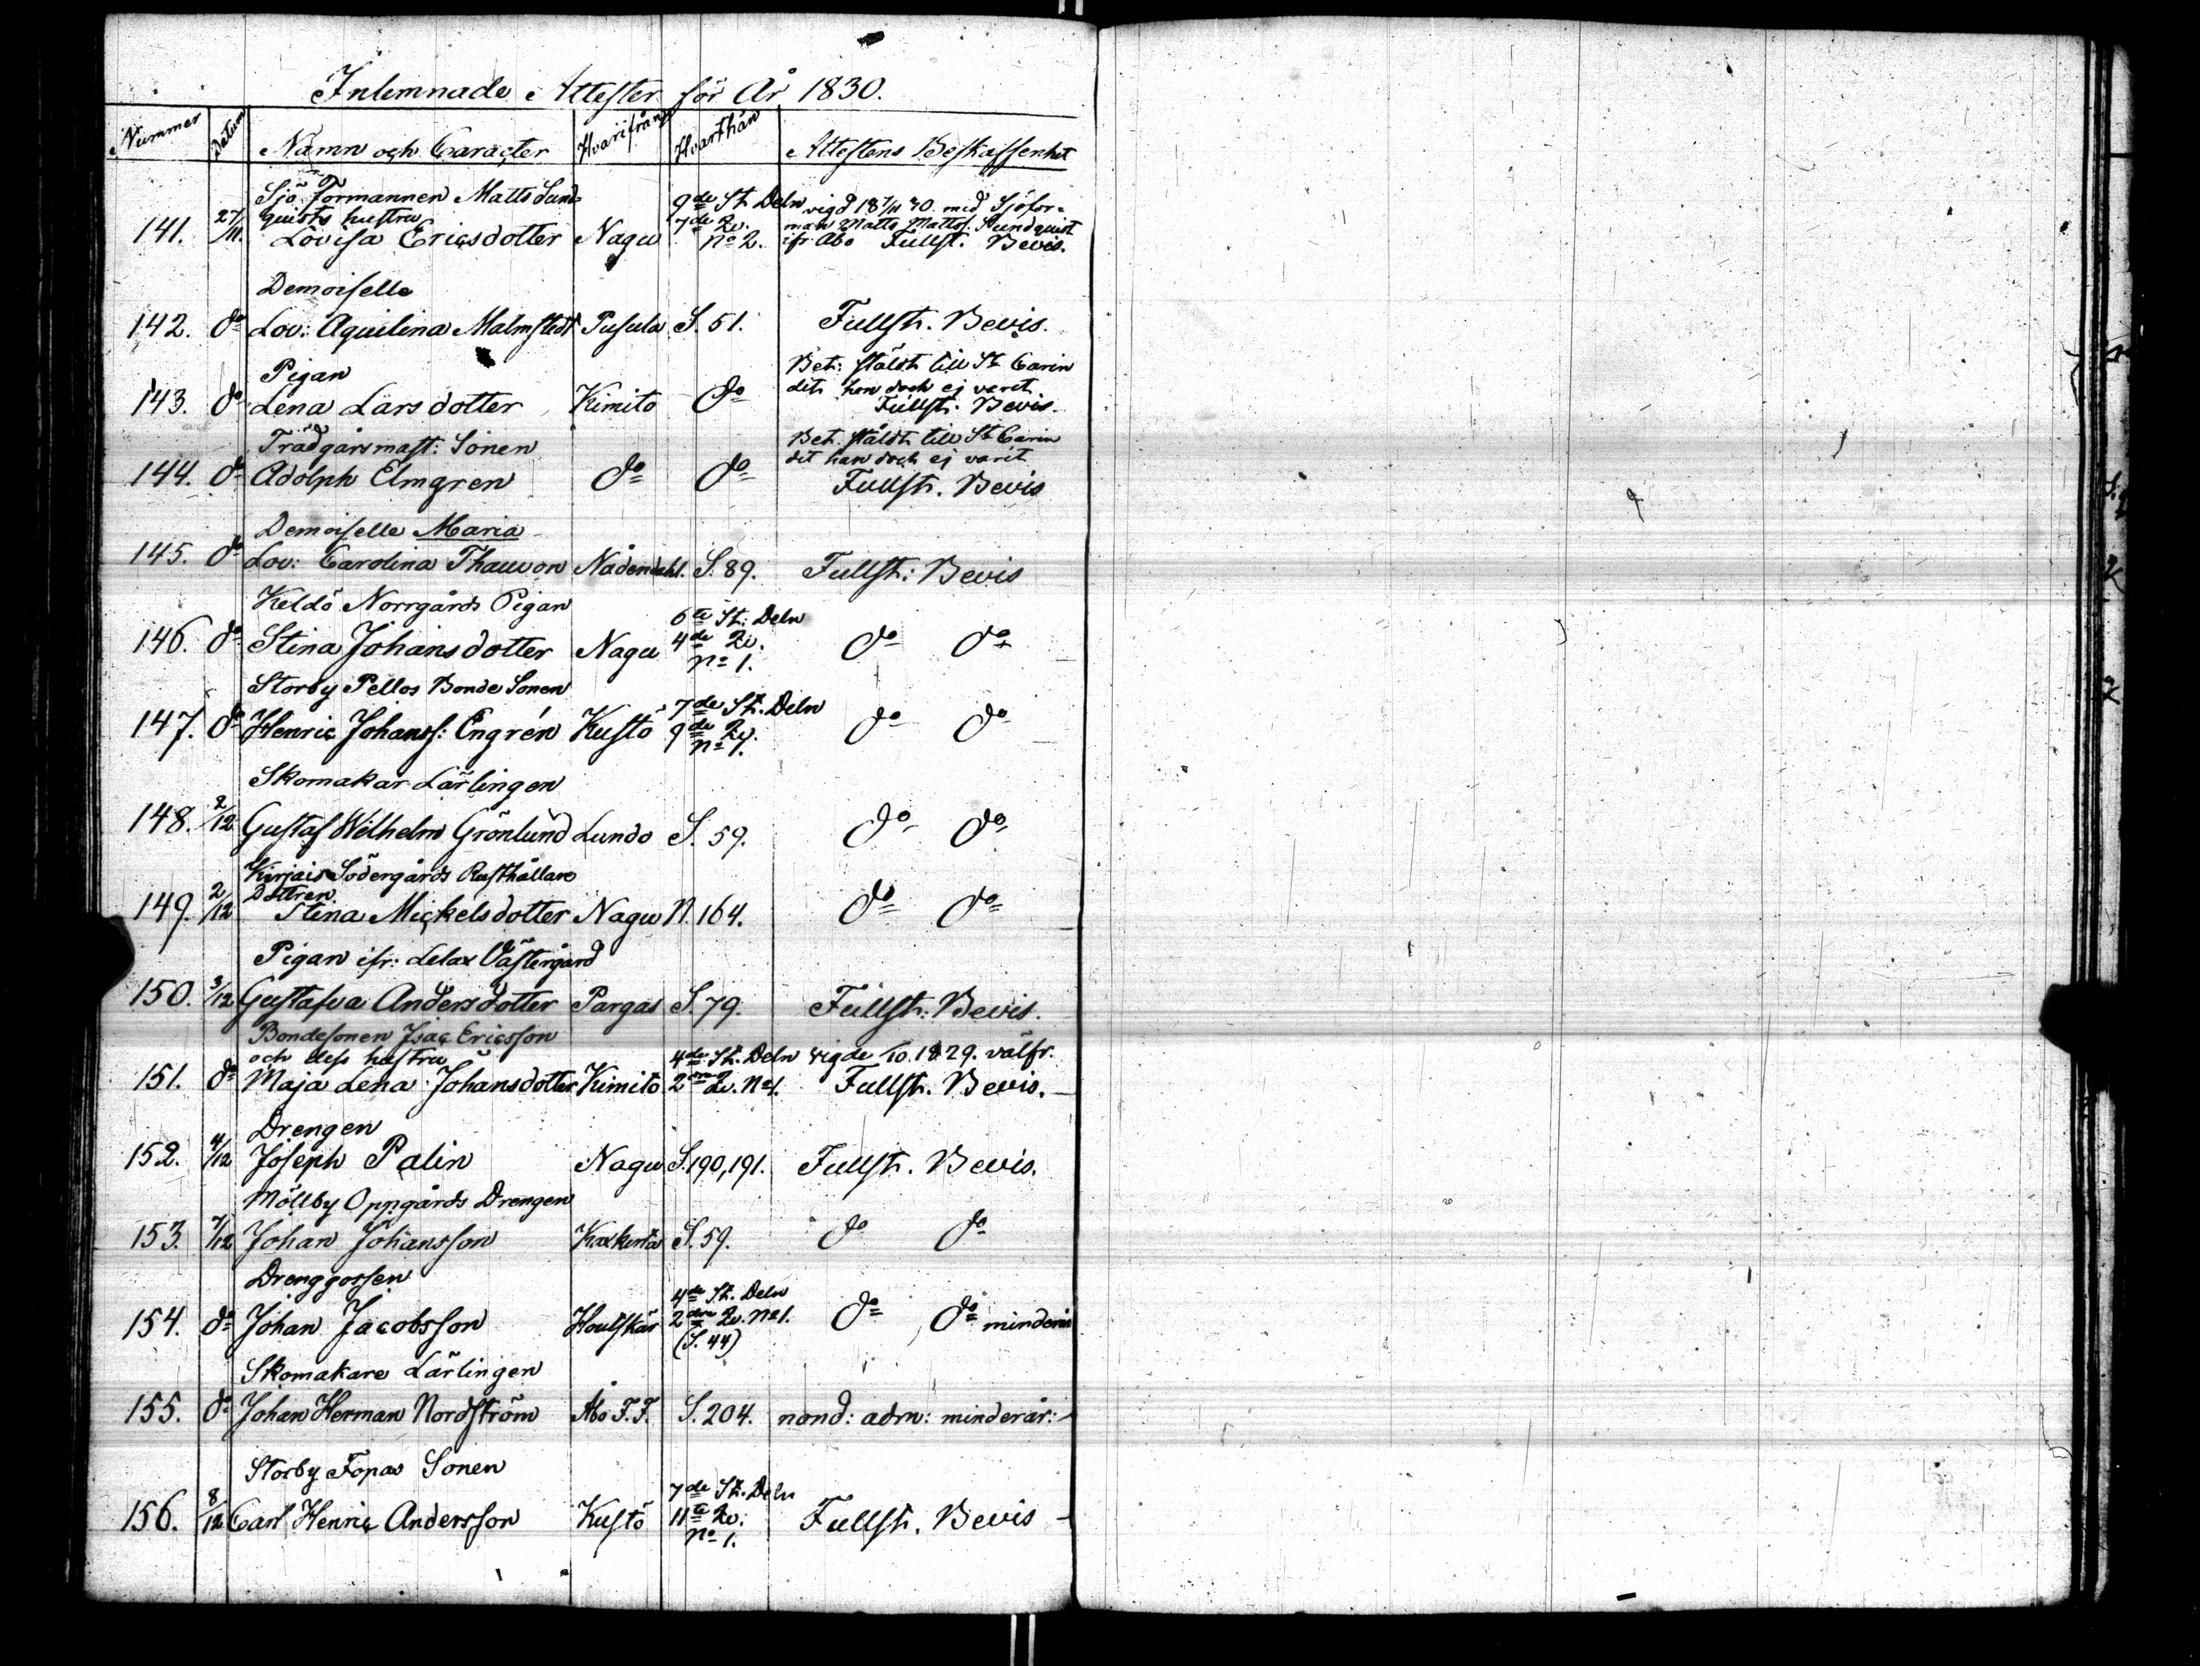 Inlemnade Attester för År 1830.
Nummer Datum Namn och Caracter Hvarifrån Hvarthän Attestens Beskaffenhet
Sjö Formannen Matts Sund=
quists hustru
141. 27/11. Lovisa Ericsdotter Nagu 9de St. Deln 7de Qv. No 2.
vigd 18 7/11 30. med Sjöfor=
man Matts Mattss: Sundquist
ifr Åbo Fullst. Bevis.
Demoiselle
142. do Lov: Aquilina Malmstedt Pusula S. 51. Fullst. Bevis.
Pigan
143. do Lena Larsdotter Kimito do
Bet: stäldt till St Carin
dit hon doch ej varit
Fullst. Bevis.
Trädgårsmast: Sonen
144. do Adolph Elmgren do do
Bet. stäldt till St Carin
dit han doch ej varit
Fullst. Bevis
Demoiselle Maria
145. do Lov: Carolina Thauvon Nådendahl. S. 89. Fullst: Bevis
Keldö Norrgårds Pigan
146. do Stina Johansdotter Nagu 6te St: Deln 4de Qv. no 1. do do
Storby Pellos Bonde Sonen
147. do Henric Johanss: Engrén Kustö 7de St. Deln 9de Qv. no 1. do do
Skomakar Lärlingen
148. 2/12 Gustaf Wilhelm Grönlund Lundo S. 59. do do
Kirjais Södergårds Rusthållare
Dottren
149. 2/12 Stina Mickelsdotter Nagu N. 164. do do
Pigan ifr: Lelax Västergård
150. 3/12 Gustafva Andersdotter Pargas S. 79. Fullst: Bevis.
Bondesonen Isac Ericsson
och dess hustru
151. do Maja Lena Johansdotter Kimito 4de St. Deln 2dra Qv. No 1.
vigde /10. 1829. välfr.
Fullst. Bevis.
Drengen
152. 4/12 Joseph Palin Nagu S. 190, 191. Fullst. Bevis.
Möllby Oppgårds Drengen
153. 7/12 Johan Johansson Kakskerta S. 59. do do
Drenggossen
154. do Johan Jacobsson Houtskär 4de St. Deln 2dra Qv. No 1. (S. 44) do do minderår
Skomakare Lärlingen
155. do Johan Herman Nordström Åbo F. F. S. 204. nond: adm: minderår:
Storby Fopas Sonen
156. 8/12 Carl Henric Andersson Kustö 7de St. Deln 11te Qv: no 1. Fullst. Bevis